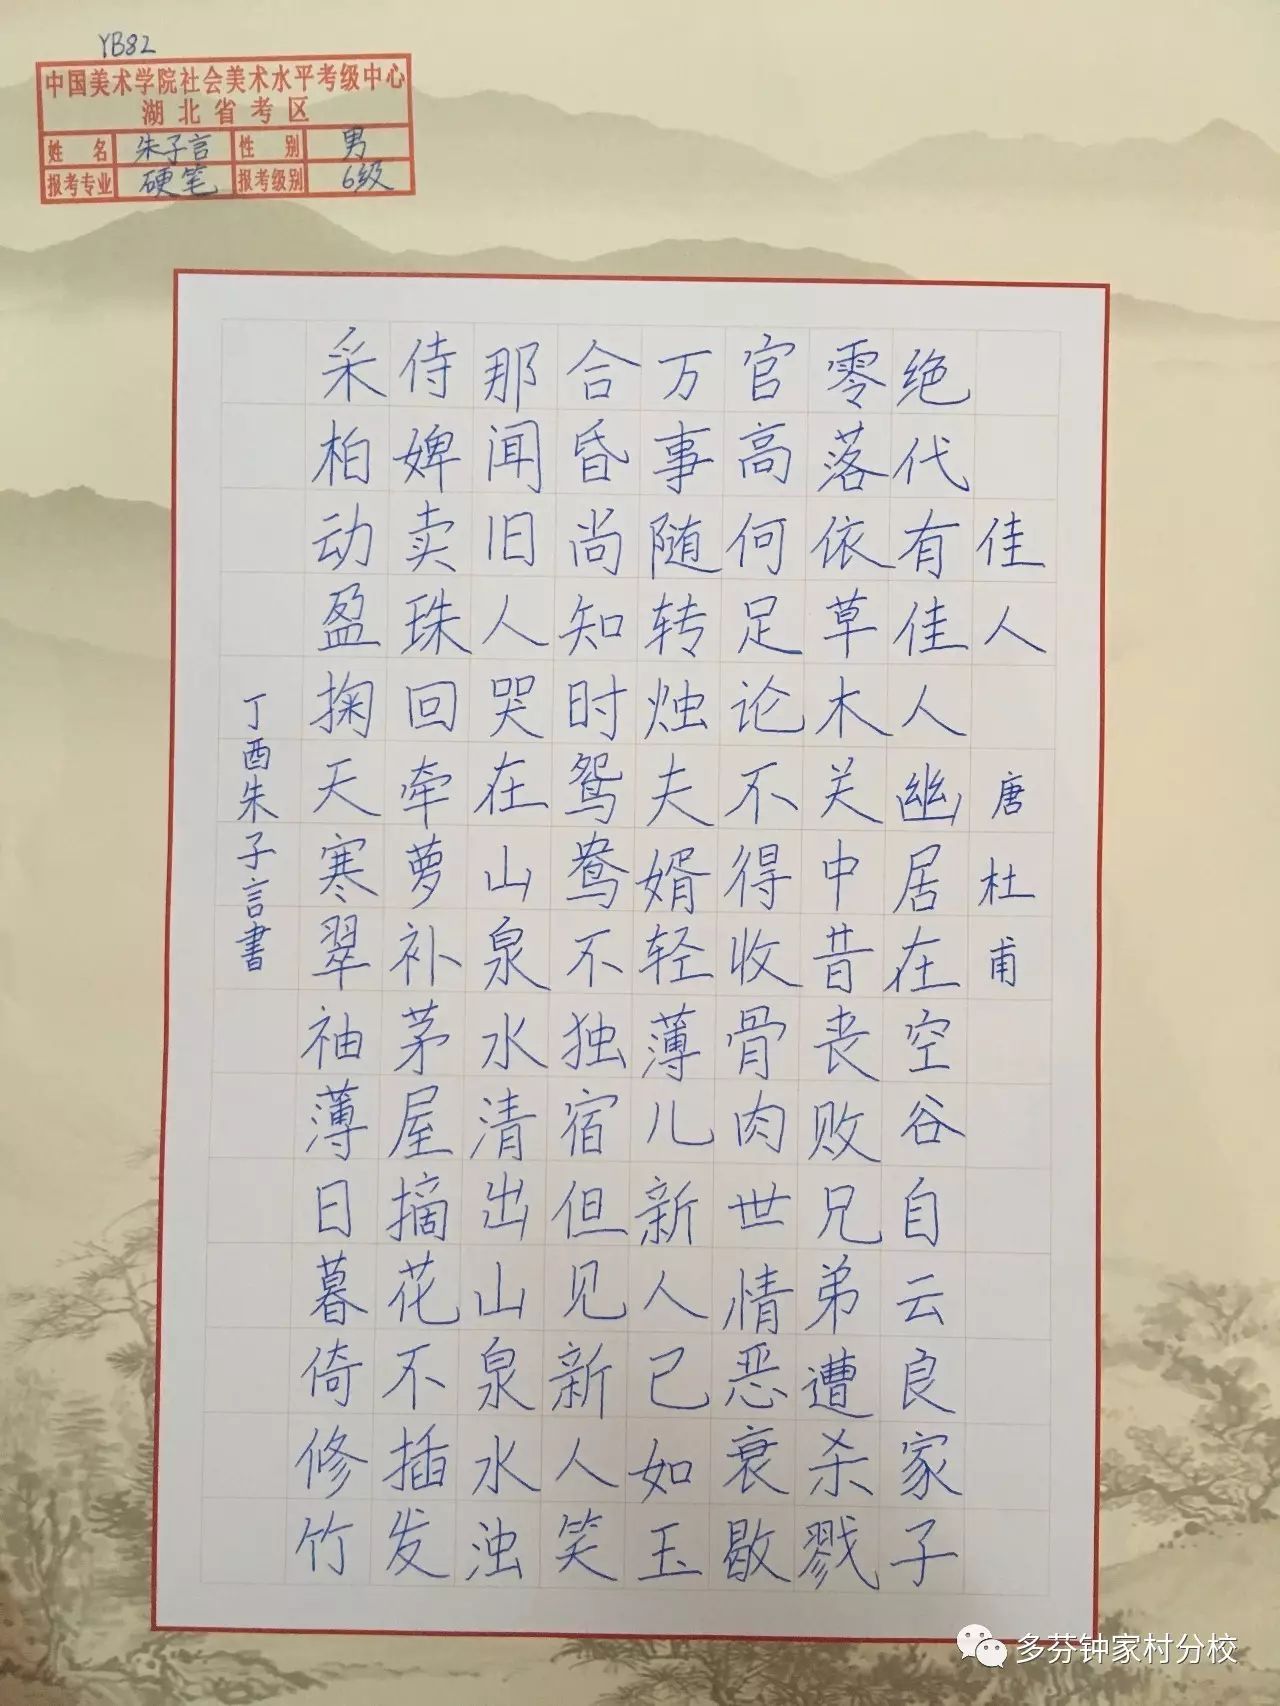 YB82
中国美术学院社会美术水平考级中心
湖北省考区
姓名 朱子言 性别 男
报考专业 硬笔 报考级别 6级
佳人 唐杜甫
绝代有佳人幽居在空谷自云良家子
零落依草木关中昔丧败兄弟遭杀戮
官高何足论不得收骨肉世情恶衰歇
万事随转烛夫婿轻薄儿新人已如玉
合昏尚知时鸳鸯不独宿但见新人笑
那闻旧人哭在山泉水清出山泉水浊
侍婢卖珠回牵萝补茅屋摘花不插发
采柏动盈掬天寒翠袖薄日暮倚修竹
丁酉朱子言書
多芬钟家村分校